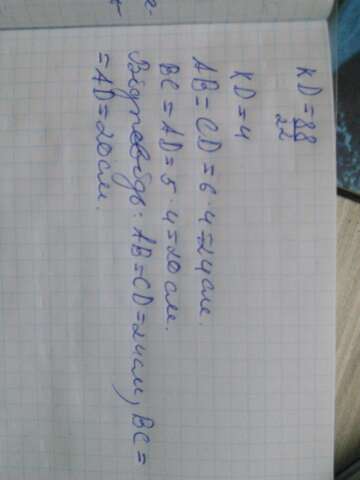 KD = 88/22
KD = 4
AB = CD = 6 · 4 = 24 см.
BC = AD = 5 · 4 = 20 см.
Відповідь: AB = CD = 24 см, BC =
= AD = 20 см.